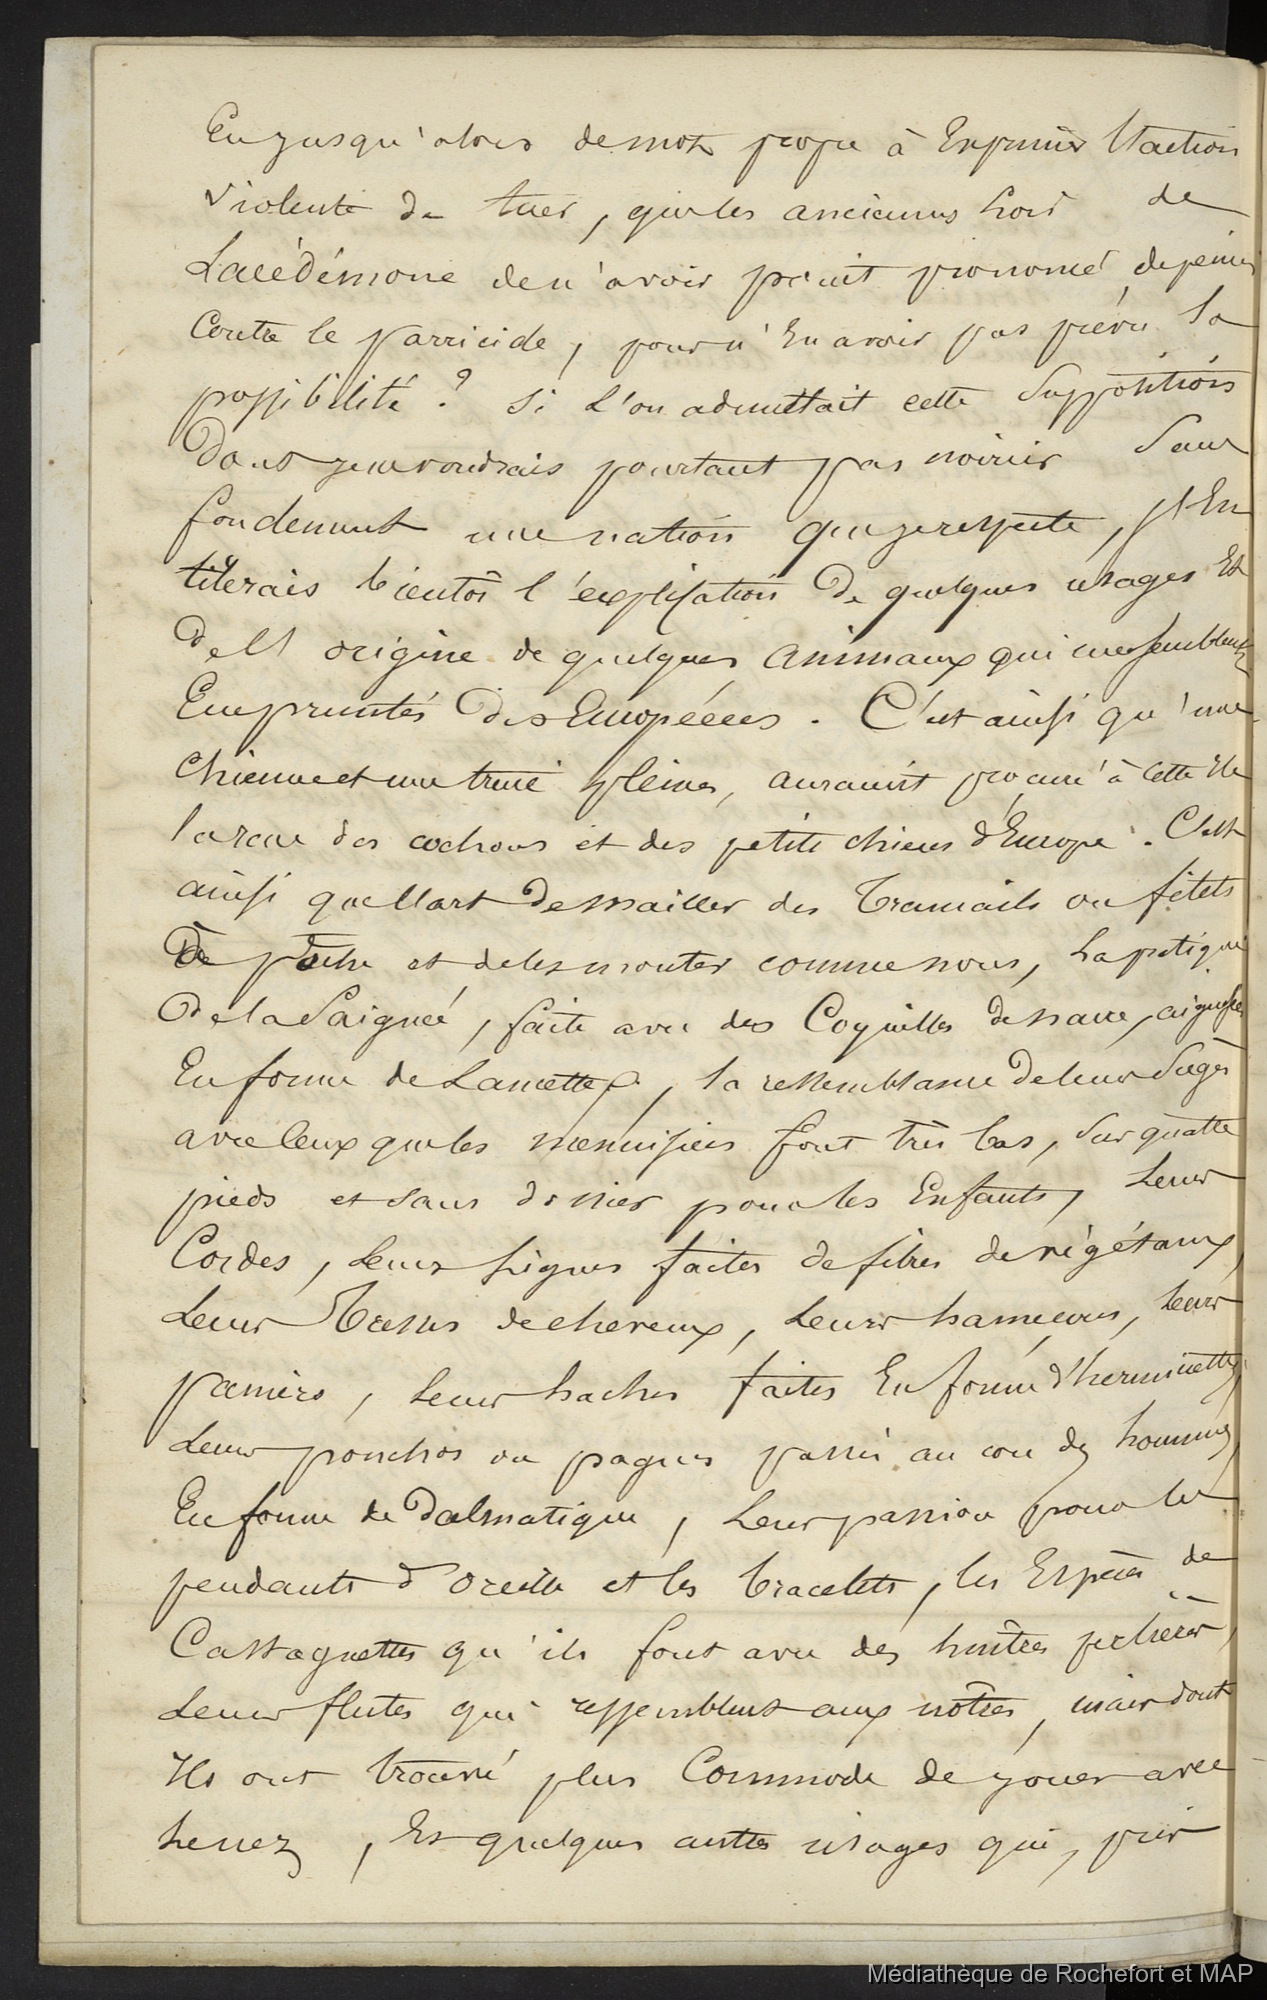 Eu jusqu'alors de mots propre à Exprimer l'action
violente de tuer, que les anciennes lois de
Lacédémone de n'avoir point prononcé de peines
Contre le parricide, pour n'En avoir pas prévu la
possibilité ? Si L'on admettait cette Supposition
Dont je ne voudrais pourtant pas noircir Sans
fondement une nation que je respecte, j'En
tirerais bientôt l'explication De quelques usages Et
De l'origine de quelques animaux qui me semblent
Empruntés Des Européens. C'est ainsi qu'une
chienne et une truie pleines, auraient procuré à cette Ile
la race des cochons et des petits chiens d'Europe. C'est
ainsi que l'art De mailler des Tramails ou filets
De pêche et de les monter comme nous, La pratique
De la Saignée, faite avec des Coquilles De nacre, aiguisées
En forme de Lancettes, la ressemblance De leurs Sièges
avec Ceux que les menuisiers font très bas, Sur quatre
pieds et Sans dossier pour les Enfants, Leurs
Cordes, Leurs Lignes faites de fibres de végétaux,
Leurs Tresses de cheveux, Leurs hameçons, Leurs
paniers, Leurs haches faites En forme d'herminettes,
Leurs ponchos ou pagnes passés au cou des hommes
En forme de Dalmatique, Leur passion pour les
pendants d'oreille et les bracelets, les Espèces de
Castagnettes qu'ils font avec des huîtres perlières,
Leurs flutes qui ressemblent aux nôtres, mais dont
Ils ont trouvé plus Commode de jouer avec
Le nez, Et quelques autres usages qui, pris
Médiathèque de Rochefort et MAP